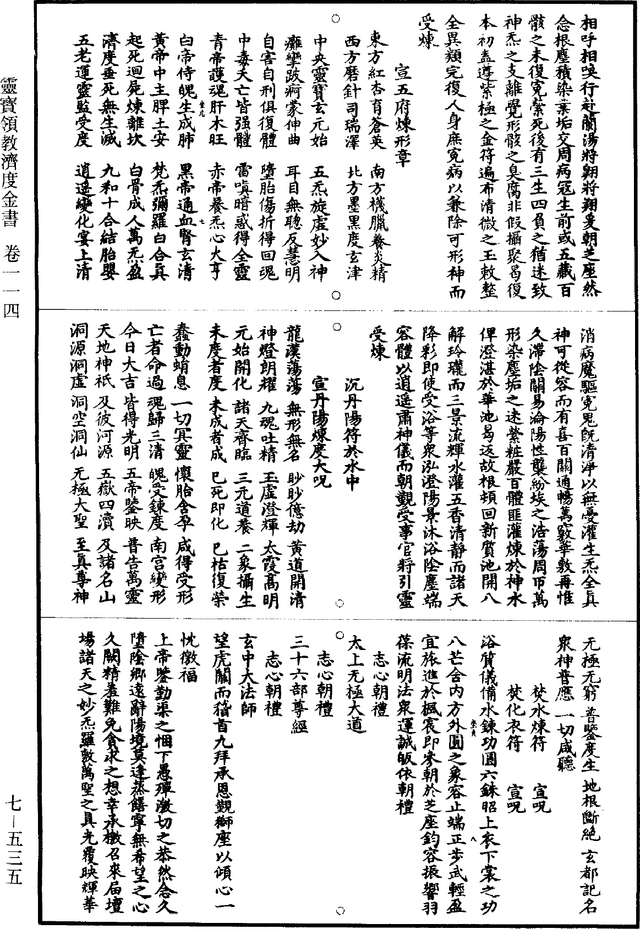 靈寶領教濟度金書 卷一一四
七-五三五
相呼相喚行赴蘭湯將翱將翔爰朝芝座然
念根塵積染業垢交周病冠生前或五藏百
骸之未復冤縈死後有三生四負之猶迷致
神炁之支離覺形骸之臭腐非假攝聚曷復
本初蓋遵紫極之金符遍布清微之玉敕整
全異類完復人身庶冤病以兼除可形神而
受煉
宣五府煉形章
東方紅杏育蒼英 南方機臘養炎精
西方磨針司瑞澤 北方墨黑度玄津
中央靈寶玄元始 五炁旋虛妙入神
癱攣跛痾蒙伸曲 耳目無聰反慧明
自害自刑俱復體 墮胎傷折得回魂
中毒夭亡皆強體 雷嗔暗惑得全靈
青帝護魂肝木旺 赤帝養炁心大亨
白帝侍魄生成肺 黑帝通血腎玄清
黃帝中主脾土安 梵炁彌羅自合真
起死迴屍煉離坎 白骨成人萬炁盈
濟度垂死無生滅 九和十合結胎嬰
五老運靈監受度 逍遙變化宴上清
消病魔驅冤鬼既清淨以無憂灌生炁全真
神可從容而有喜百關通暢萬竅華敦再惟
久滯陰關易淪陽性襲紛埃之浩蕩周帀萬
形染塵垢之迷縈粧嚴百體匪灌煉於神水
俾澄湛於華池曷返故根頓回新質池開八
解玲瓏而三景流輝水灌五香清靜而諸天
降彩即使受浴等眾泓澄陽景沐浴陰塵端
容體以逍遙肅神儀而朝覲受事官將引靈
受煉
沉丹陽符於水中
宣丹陽煉度大咒
龍漢蕩蕩 無形無名 眇眇億劫 黃道開清
神燈朗耀 九魂吐精 玉虛澄輝 太霞高明
元始開化 諸天齊臨 三元道養 二象攝生
未度者度 未成者成 已死即化 已枯復榮
蠢動蛸息 一切冥靈 懷胎含孕 咸得受形
亡者命過 魂歸三清 魄受鍊度 南宮變形
今日大吉 皆得光明 五帝鑒映 普告萬靈
天地神祇 及彼河源 五嶽四瀆 及諸名山
洞源洞虛 洞空洞仙 无極大聖 至真尊神
无極无窮 普鑒度生 地根斷絕 玄都記名
眾神普應 一切咸聽
焚水煉符 宣咒
焚化衣符 宣咒
浴質儀備水鍊功圓六銖昭上衣下裳之功
八芒含內方外圓之象容止端正步武輕盈
宜旅進於楓宸即參朝於芝座鈞容振響羽
葆流明法眾運誠皈依朝禮
志心朝禮
太上无極大道
志心朝禮
三十六部尊經
志心朝禮
玄中大法師
望虎關而稽首九拜承恩觀獅座以傾心一
忱徼福
上帝鑒勤渠之悃下愚殫激切之恭然念久
墮陰鄉遠辭陽境莫逢蒸饍寧無希望之心
久闕精羞難免貪求之想幸承檄召來屆壇
場諸天之妙炁羅敷萬聖之具光覆映輝華